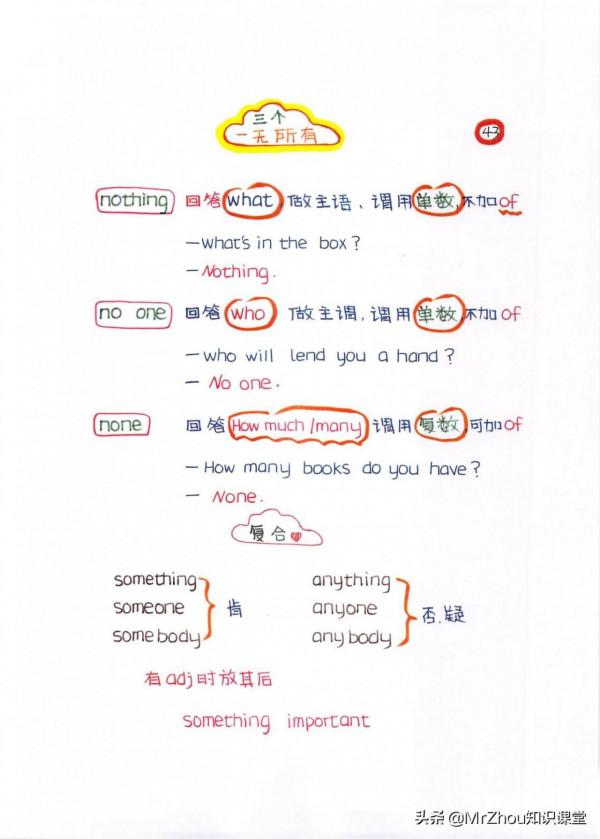 三个
一无所有
43
nothing 回答 what, 做主语、谓用单数,不加of
—what's in the box?
—Nothing.
no one 回答 who 做主调,谓用单数,不加of
—who will lend you a hand?
— No one.
none 回答 How much/many 谓用复数,可加of
—How many books do you have?
— None.
复合
something anything
someone 肯 anyone 否.疑
somebody anybody
有adj时放其后
something important
头条 @MrZhou知识课堂